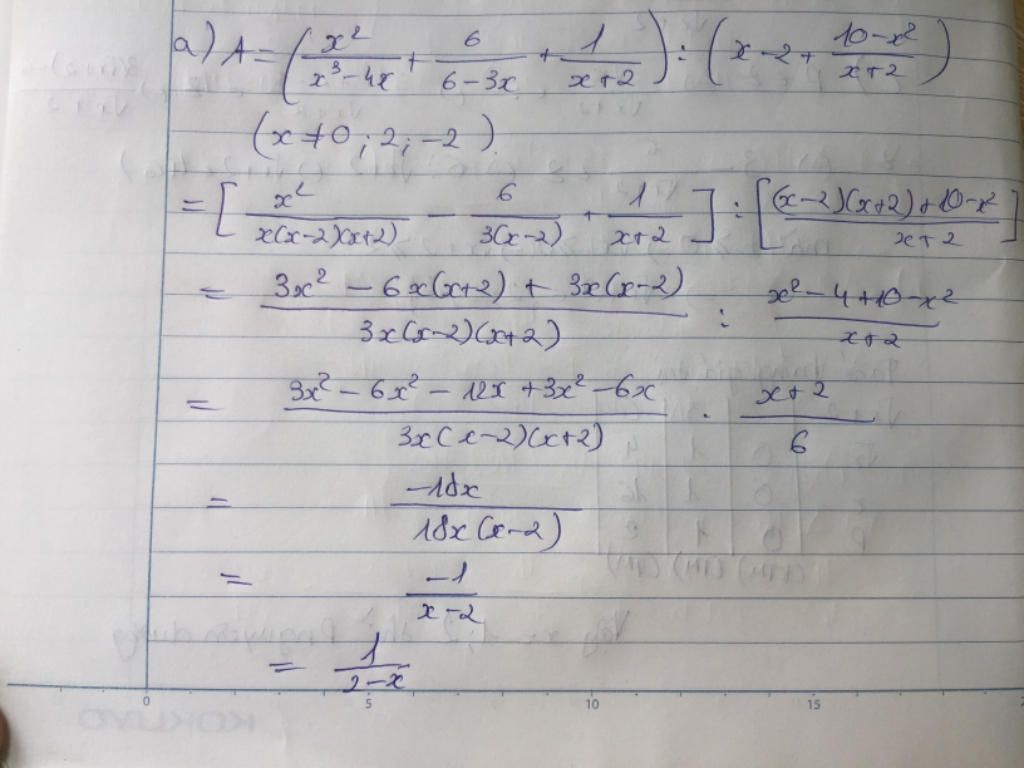 a) A = (x²/(x³-4x) + 6/(6-3x) + 1/(x+2)) : (x-2 + (10-x²)/(x+2))
(x ≠ 0; 2; -2)
= [x²/(x(x-2)(x+2)) - 6/(3(x-2)) + 1/(x+2)] : [((x-2)(x+2)+10-x²)/(x+2)]
= (3x² - 6x(x+2) + 3x(x-2))/(3x(x-2)(x+2)) : (x²-4+10-x²)/(x+2)
= (3x² - 6x² - 12x + 3x² - 6x)/(3x(x-2)(x+2)) . (x+2)/6
= -18x/(18x(x-2))
= -1/(x-2)
= 1/(2-x)
0 5 10 15